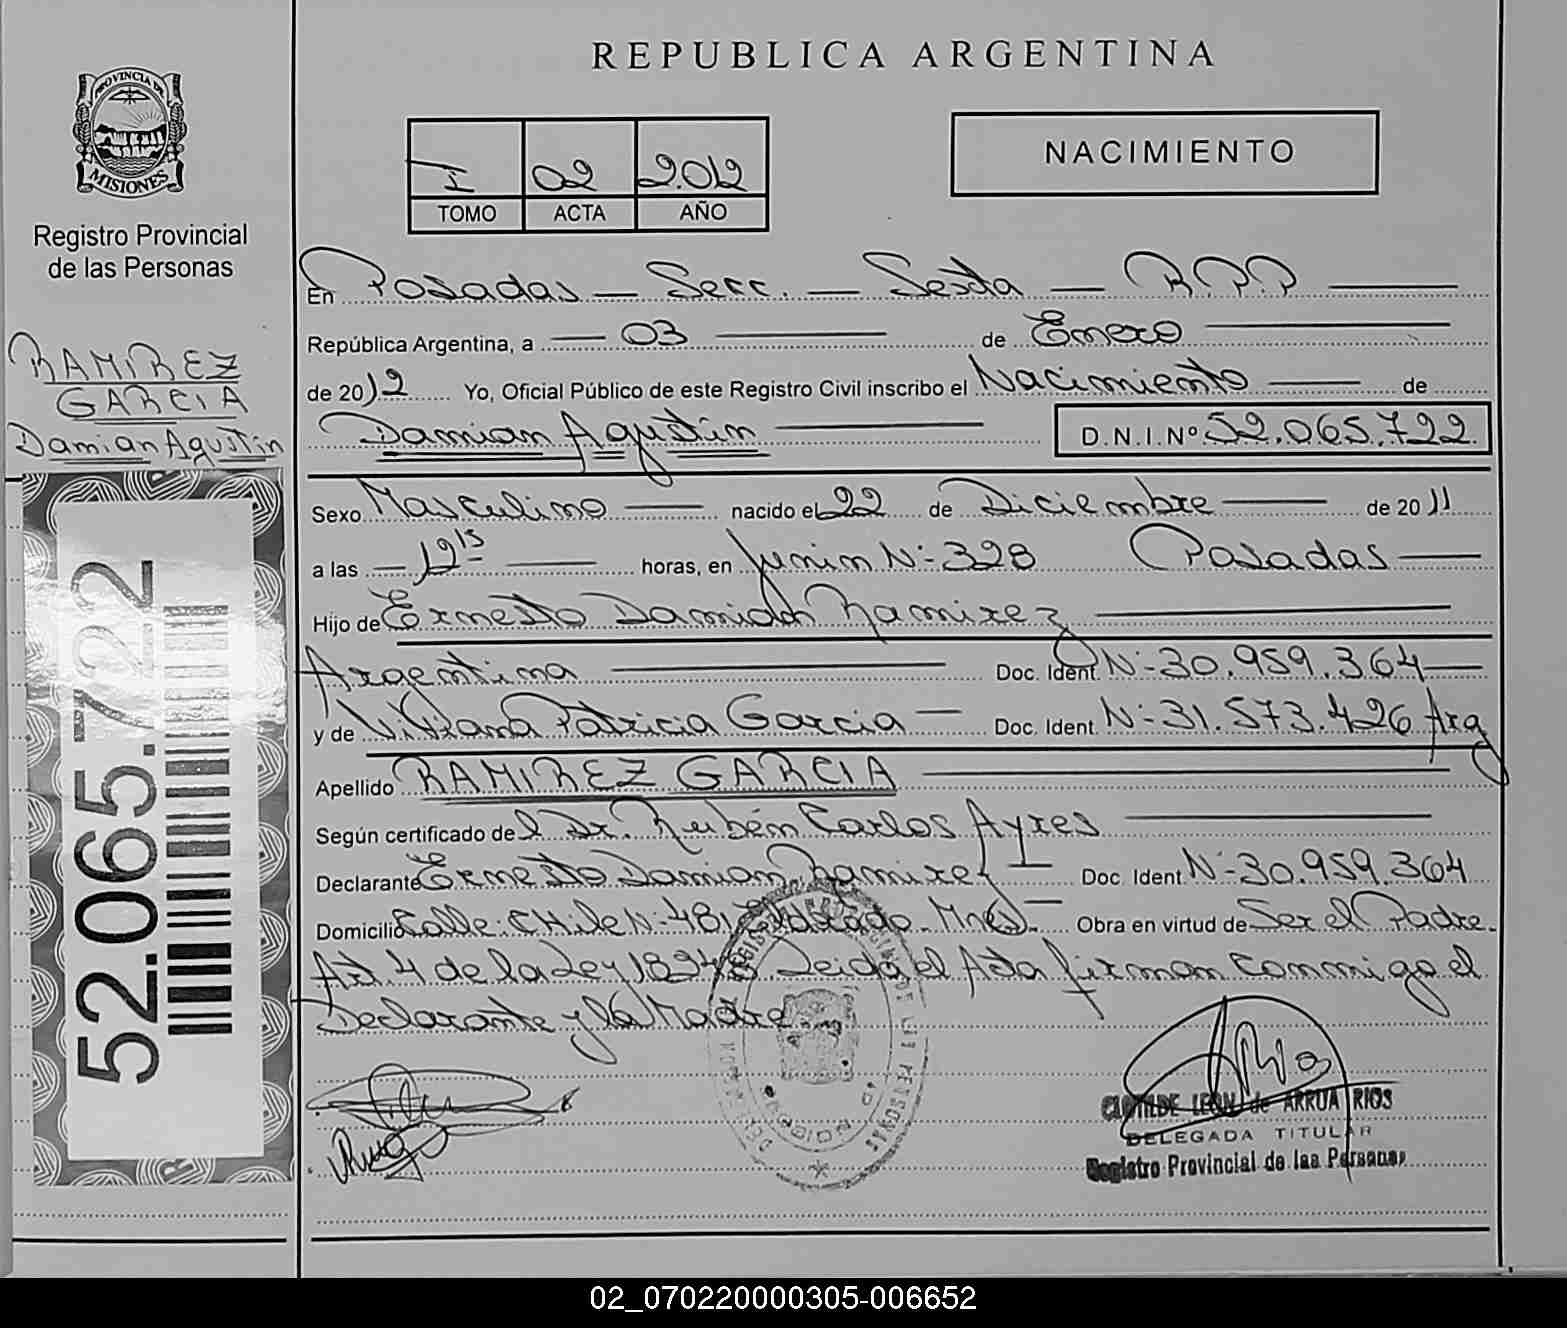 REPUBLICA ARGENTINA
PROVINCIA DE
MISIONES
Registro Provincial
de las Personas
I 02 2.012
TOMO ACTA AÑO
NACIMIENTO
En Posadas — Secc. — Sexta — R.P.P —
República Argentina, a — 03 — de Enero —
de 2012 Yo, Oficial Público de este Registro Civil inscribo el Nacimiento — de
Damian Agustin — D.N.I.Nº 52.065.722
RAMIREZ
GARCIA
Damian Agustin
52.065.722
Sexo Masculino — nacido el 22 de Diciembre — de 2011
a las — 12 15 — horas, en Junin Nº 328 Posadas —
Hijo de Ernesto Damian Ramirez —
Argentina — Doc. Ident. Nº 30.959.364 —
y de Viviana Patricia Garcia — Doc. Ident. Nº 31.573.426 Arg
Apellido RAMIREZ GARCIA —
Según certificado del Dr. Rubén Carlos Ayres —
Declarante Ernesto Damian Ramirez — Doc. Ident. Nº 30.959.364
Domicilio Calle: CHile Nº 481 Mnes. — Obra en virtud de Ser el Padre.
Art. 4 de la Ley Leida el Acta firman conmigo el
Declarante y la Madre
CLOTILDE LEON de ARRUA RIOS
DELEGADA TITULAR
Registro Provincial de las Personas
02_070220000305-006652